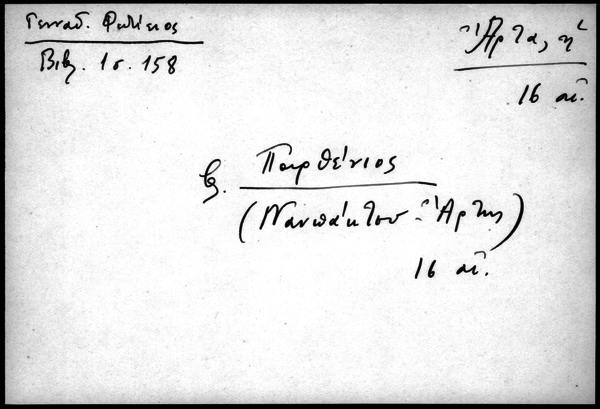 Γενναδ. Φωτίειος
Βιβ. 1 σ. 158
Ἄρτα, ἡ
16 αἰ.
β. Παρθένιος
(Ναυπάκτου - Ἄρτης)
16 αἰ.